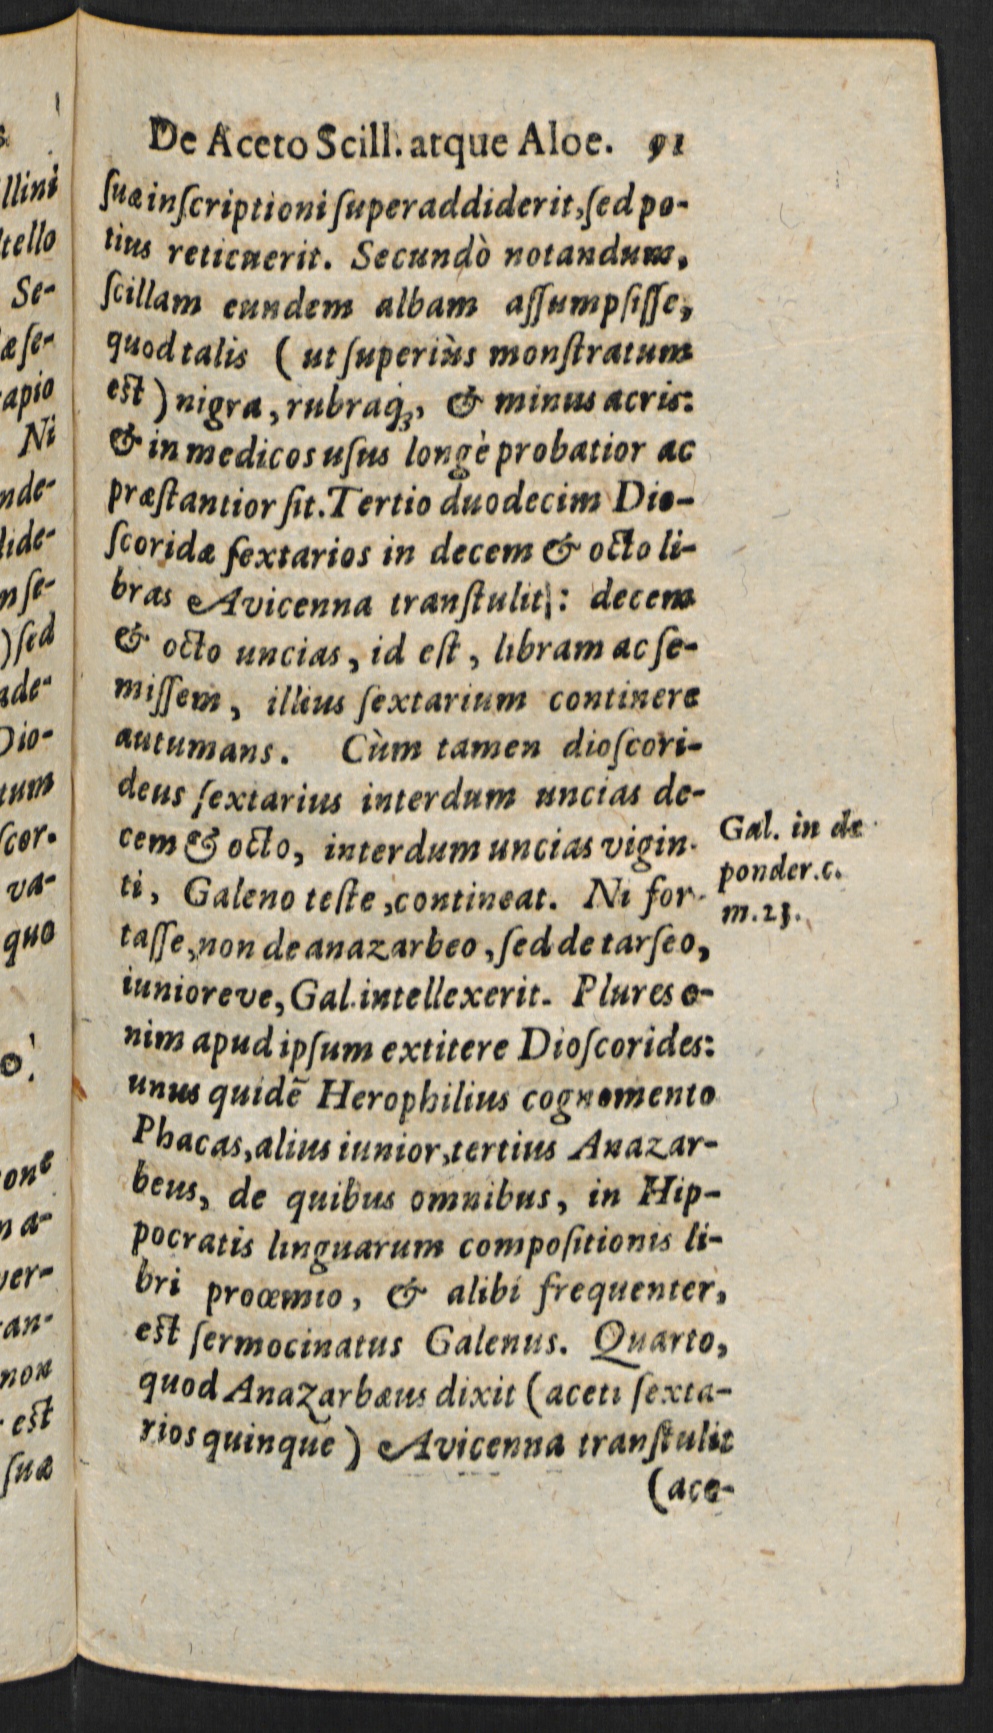 De Aceto Scill. atque Aloe. 91
ſuæ inſcriptioni ſuperaddiderit, ſed po-
tius reticuerit. Secundò notandum,
ſcillam eundem albam aſſumpſiſſe,
quod talis (ut ſuperiùs monſtratum
eſt) nigra, rubraq́;, & minus acris:
& in medicos uſus longè probatior ac
præſtantior ſit. Tertio duodecim Dio-
ſcoridæ ſextarios in decem & octo li-
bras Avicenna tranſtulit: decem
& octo uncias, id eſt, libram ac ſe-
miſſem, illius ſextarium continere
autumans. Cùm tamen dioſcori-
deus ſextarius interdum uncias de-
cem & octo, interdum uncias vigin-
ti, Galeno teſte, contineat. Ni for-
taſſe, non de anazarbeo, ſed de tarſeo,
iuniore ve, Gal. intellexerit. Plures e-
nim apud ipſum extitere Dioſcorides:
unus quidē Herophilius cognomento
Phacas, alius iunior, tertius Anazar-
beus, de quibus omnibus, in Hip-
pocratis linguarum compoſitionis li-
bri proœmio, & alibi frequenter,
eſt ſermocinatus Galenus. Quarto,
quod Anazarbæus dixit (aceti ſexta-
rios quinque) Avicenna tranſtulit
(ace-
Gal. in de
ponder. c.
m. 23.
llini
tello
Se-
æ ſe-
apio
Ni
nde-
lide-
n ſe-
) ſed
ade-
Dio-
tum
ſcor.
va-
quo
o.
one
n a-
ver-
an-
non
eſt
ſuæ